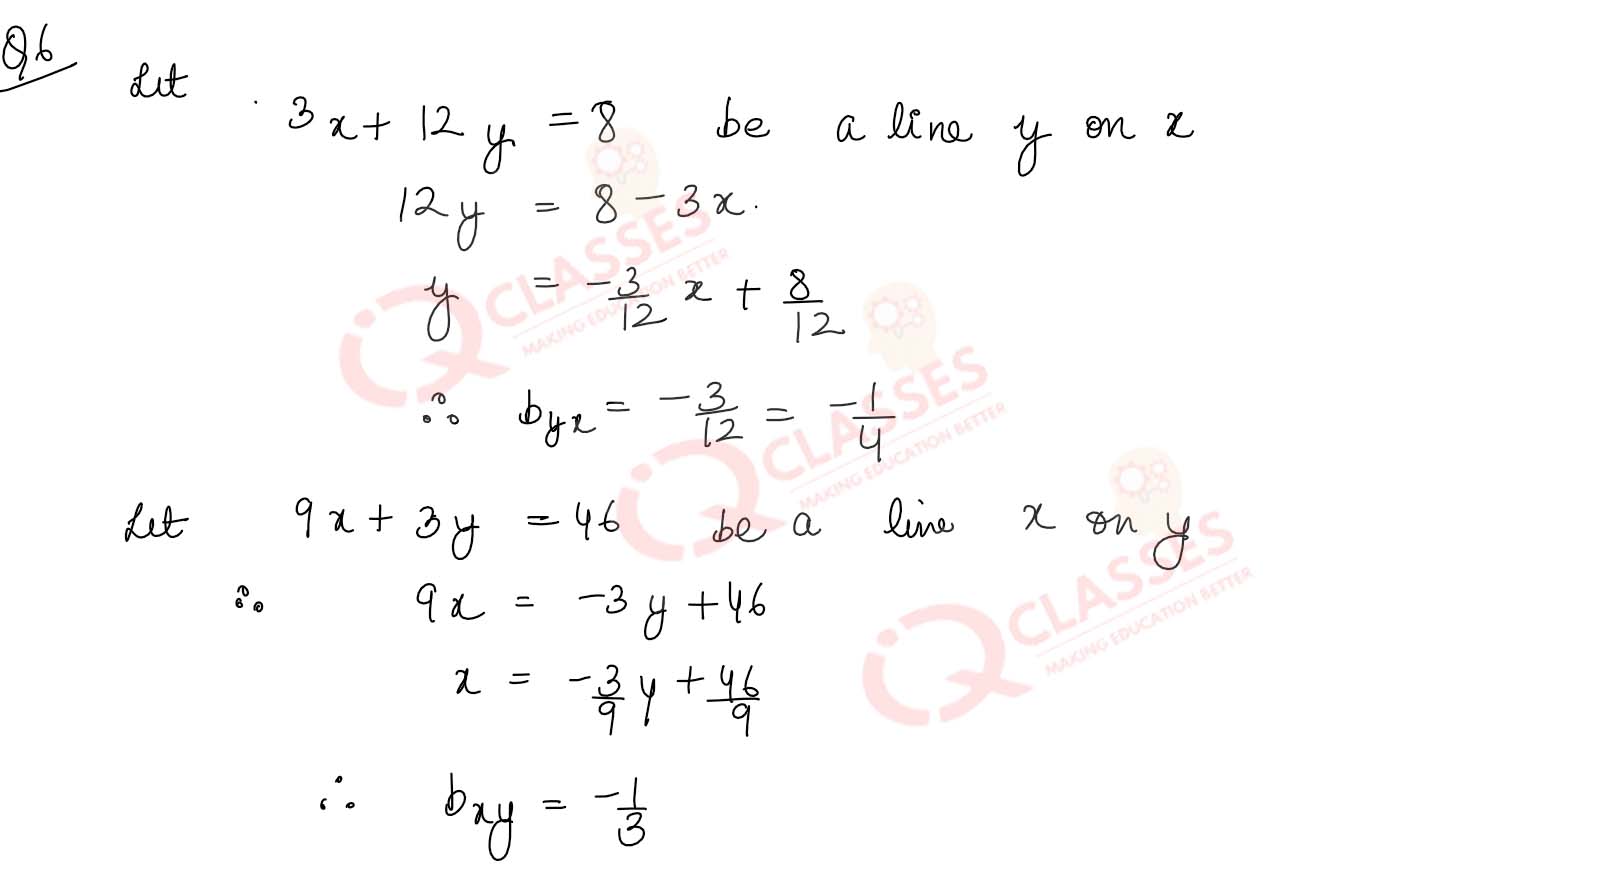 Q6
Let 3x + 12y = 8 be a line y on x
12y = 8 - 3x.
y = -3/12 x + 8/12
∴ byx = -3/12 = -1/4
Let 9x + 3y = 46 be a line x on y
∴ 9x = -3y + 46
x = -3/9 y + 46/9
∴ bxy = -1/3
iQ CLASSES
MAKING EDUCATION BETTER
iQ CLASSES
MAKING EDUCATION BETTER
iQ CLASSES
MAKING EDUCATION BETTER